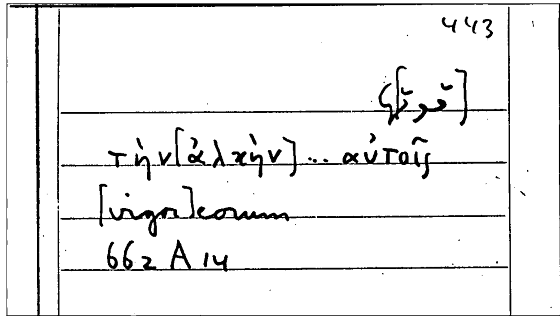 443
τὴν [ἀλκὴν] ... αὐτοῖς
[vigor] eorum
662 A 14